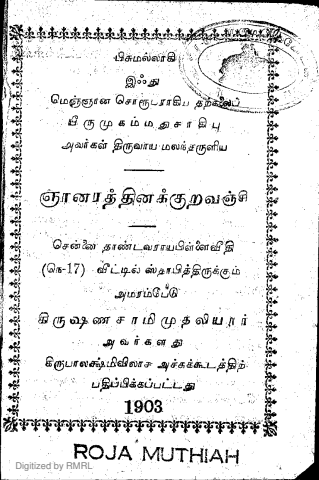 பிசுமல்லாகி
இஃது
மெஞ்ஞான சொரூபராகிய தற்கலைப்
பீருமுகம்மதுசாகிபு
அவர்கள் திருவாய்மலந்தருளிய
ஞானரத்தினக்குறவஞ்சி
சென்னை தாண்டவராயபிள்ளைவீதி
(நெ-17) வீட்டில் ஸ்தாபித்திருக்கும்
அமரம்பேடு
கிருஷ்ணசாமிமுதலியார்
அவர்களது
கிருபாலக்ஷ்மிவிலாச அச்சுக்கூடத்திற்
பதிப்பிக்கப்பட்டது
1903
ROJA MUTHIAH
Digitized by RMRL